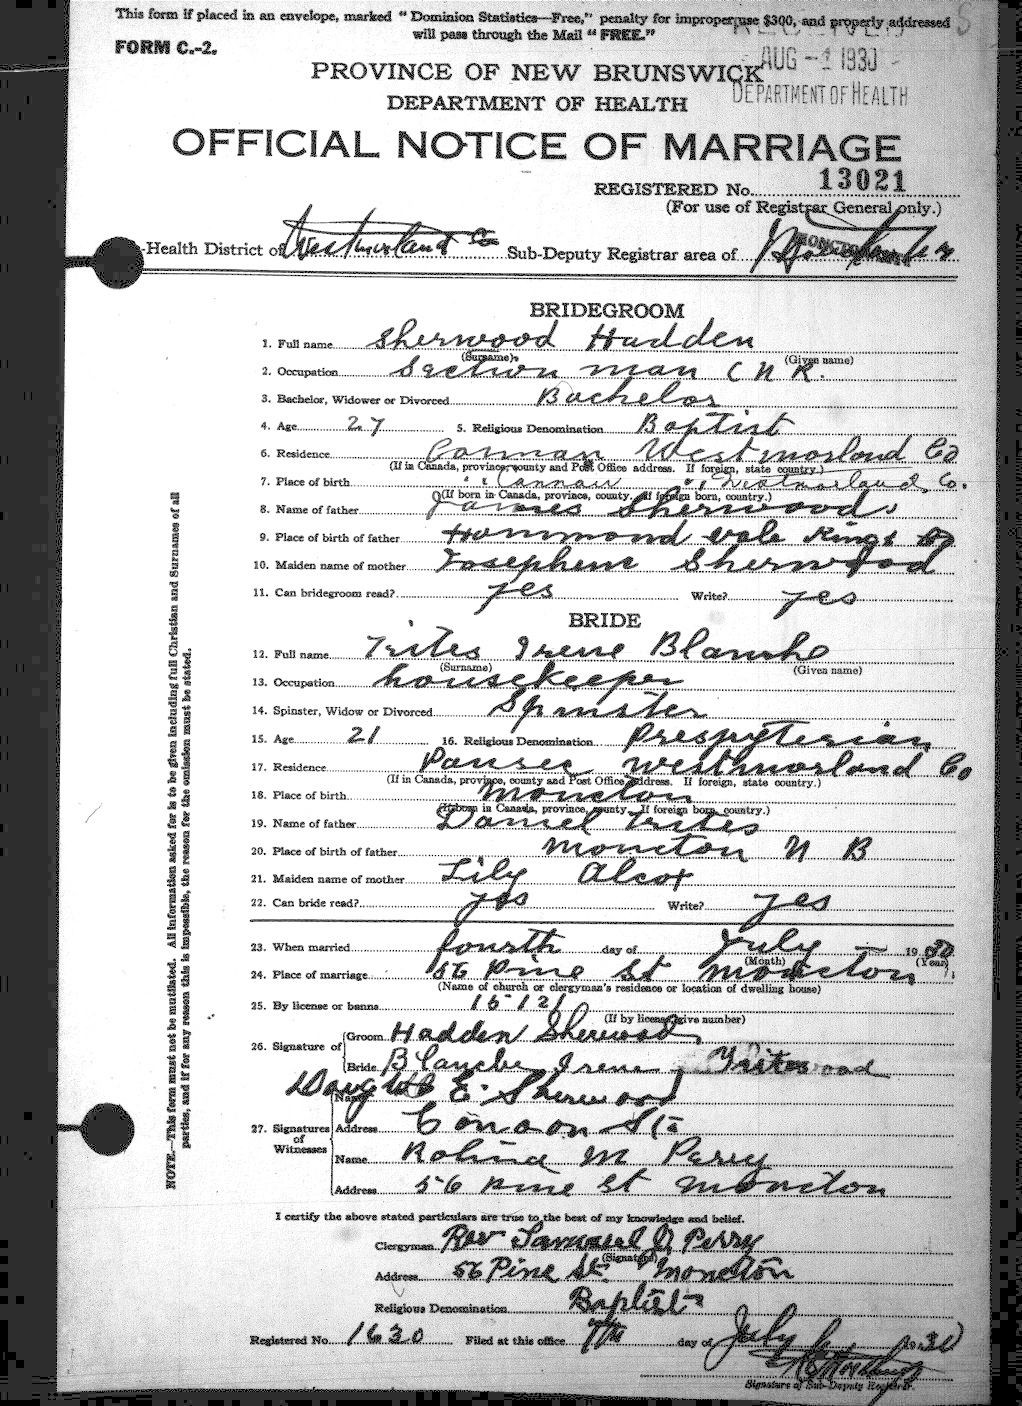 This form if placed in an envelope, marked "Dominion Statistics—Free," penalty for improper use $300, and properly addressed
will pass through the Mail "FREE."
FORM C.-2.
RECEIVED
AUG -1 1930
DEPARTMENT OF HEALTH
PROVINCE OF NEW BRUNSWICK
DEPARTMENT OF HEALTH
OFFICIAL NOTICE OF MARRIAGE
REGISTERED No. 13021
(For use of Registrar General only.)
-Health District of Westmorland Co Sub-Deputy Registrar area of
BRIDEGROOM
1. Full name Sherwood Hadden
(Surname) (Given name)
2. Occupation Section man C N R.
3. Bachelor, Widower or Divorced Bachelor
4. Age 27 5. Religious Denomination Baptist
6. Residence Westmorland Co
(If in Canada, province, county and Post Office address. If foreign, state country.)
7. Place of birth " " Westmorland Co.
(If born in Canada, province, county. If foreign born, country.)
8. Name of father James Sherwood
9. Place of birth of father Hammond vale Kings Co
10. Maiden name of mother Josephene Sherwood
11. Can bridegroom read? yes Write? yes
BRIDE
12. Full name Trites Irene Blanche
(Surname) (Given name)
13. Occupation housekeeper
14. Spinster, Widow or Divorced Spinster
15. Age 21 16. Religious Denomination Presbyterian
17. Residence Painsec Westmorland Co
(If in Canada, province, county and Post Office address. If foreign, state country.)
18. Place of birth Moncton
(If born in Canada, province, county. If foreign born, country.)
19. Name of father Daniel Trites
20. Place of birth of father Moncton N B
21. Maiden name of mother Lily Alcox
22. Can bride read? yes Write? yes
23. When married fourth day of July 1930
(Month) (Year)
24. Place of marriage 56 Pine St Moncton
(Name of church or clergyman's residence or location of dwelling house)
25. By license or banns 15121
(If by license, give number)
26. Signature of Groom Hadden Sherwood
Bride Blanche Irene Trites
27. Signatures of Witnesses
Name E. Sherwood
Address
Name M Perry
Address 56 Pine St Moncton
I certify the above stated particulars are true to the best of my knowledge and belief.
Clergyman Rev Samuel J Perry
(Signature)
Address 56 Pine St. Moncton
Religious Denomination Baptist
Registered No. 1630 Filed at this office 7th day of July 1930
Signature of Sub-Deputy Registrar.
NOTE.—This form must not be mutilated. All information asked for is to be given including full Christian and Surnames of all
parties, and if for any reason this is impossible, the reason for the omission must be stated.